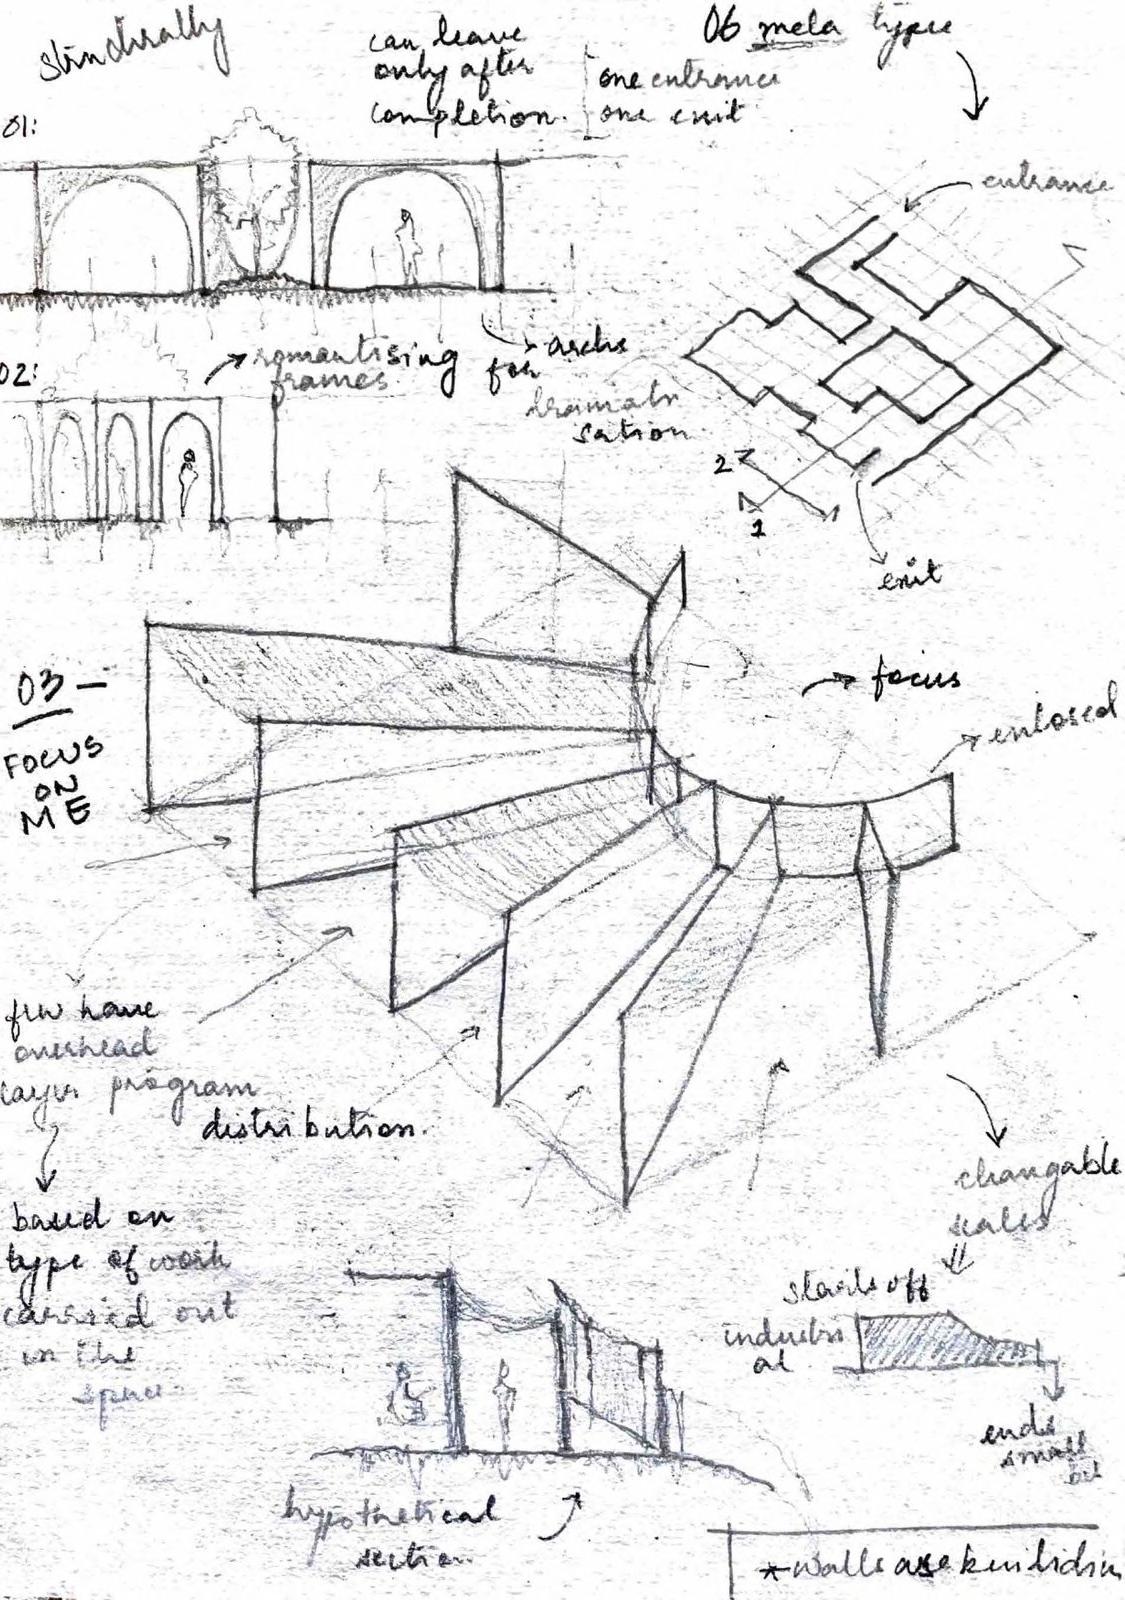 structurally
can leave
only after
completion.
one entrance
one exit
06 mela type
01:
entrance
02:
romantising
frames
archs
for
dramati
sation
2
1
exit
03 -
FOCUS
ON
ME
focus
enlosed
few have
overhead
layer program
distribution.
based on
type of work
carried out
in the
space
changable
scales
starts off
industri
al
ends
small
hypothetical
section
* walls are